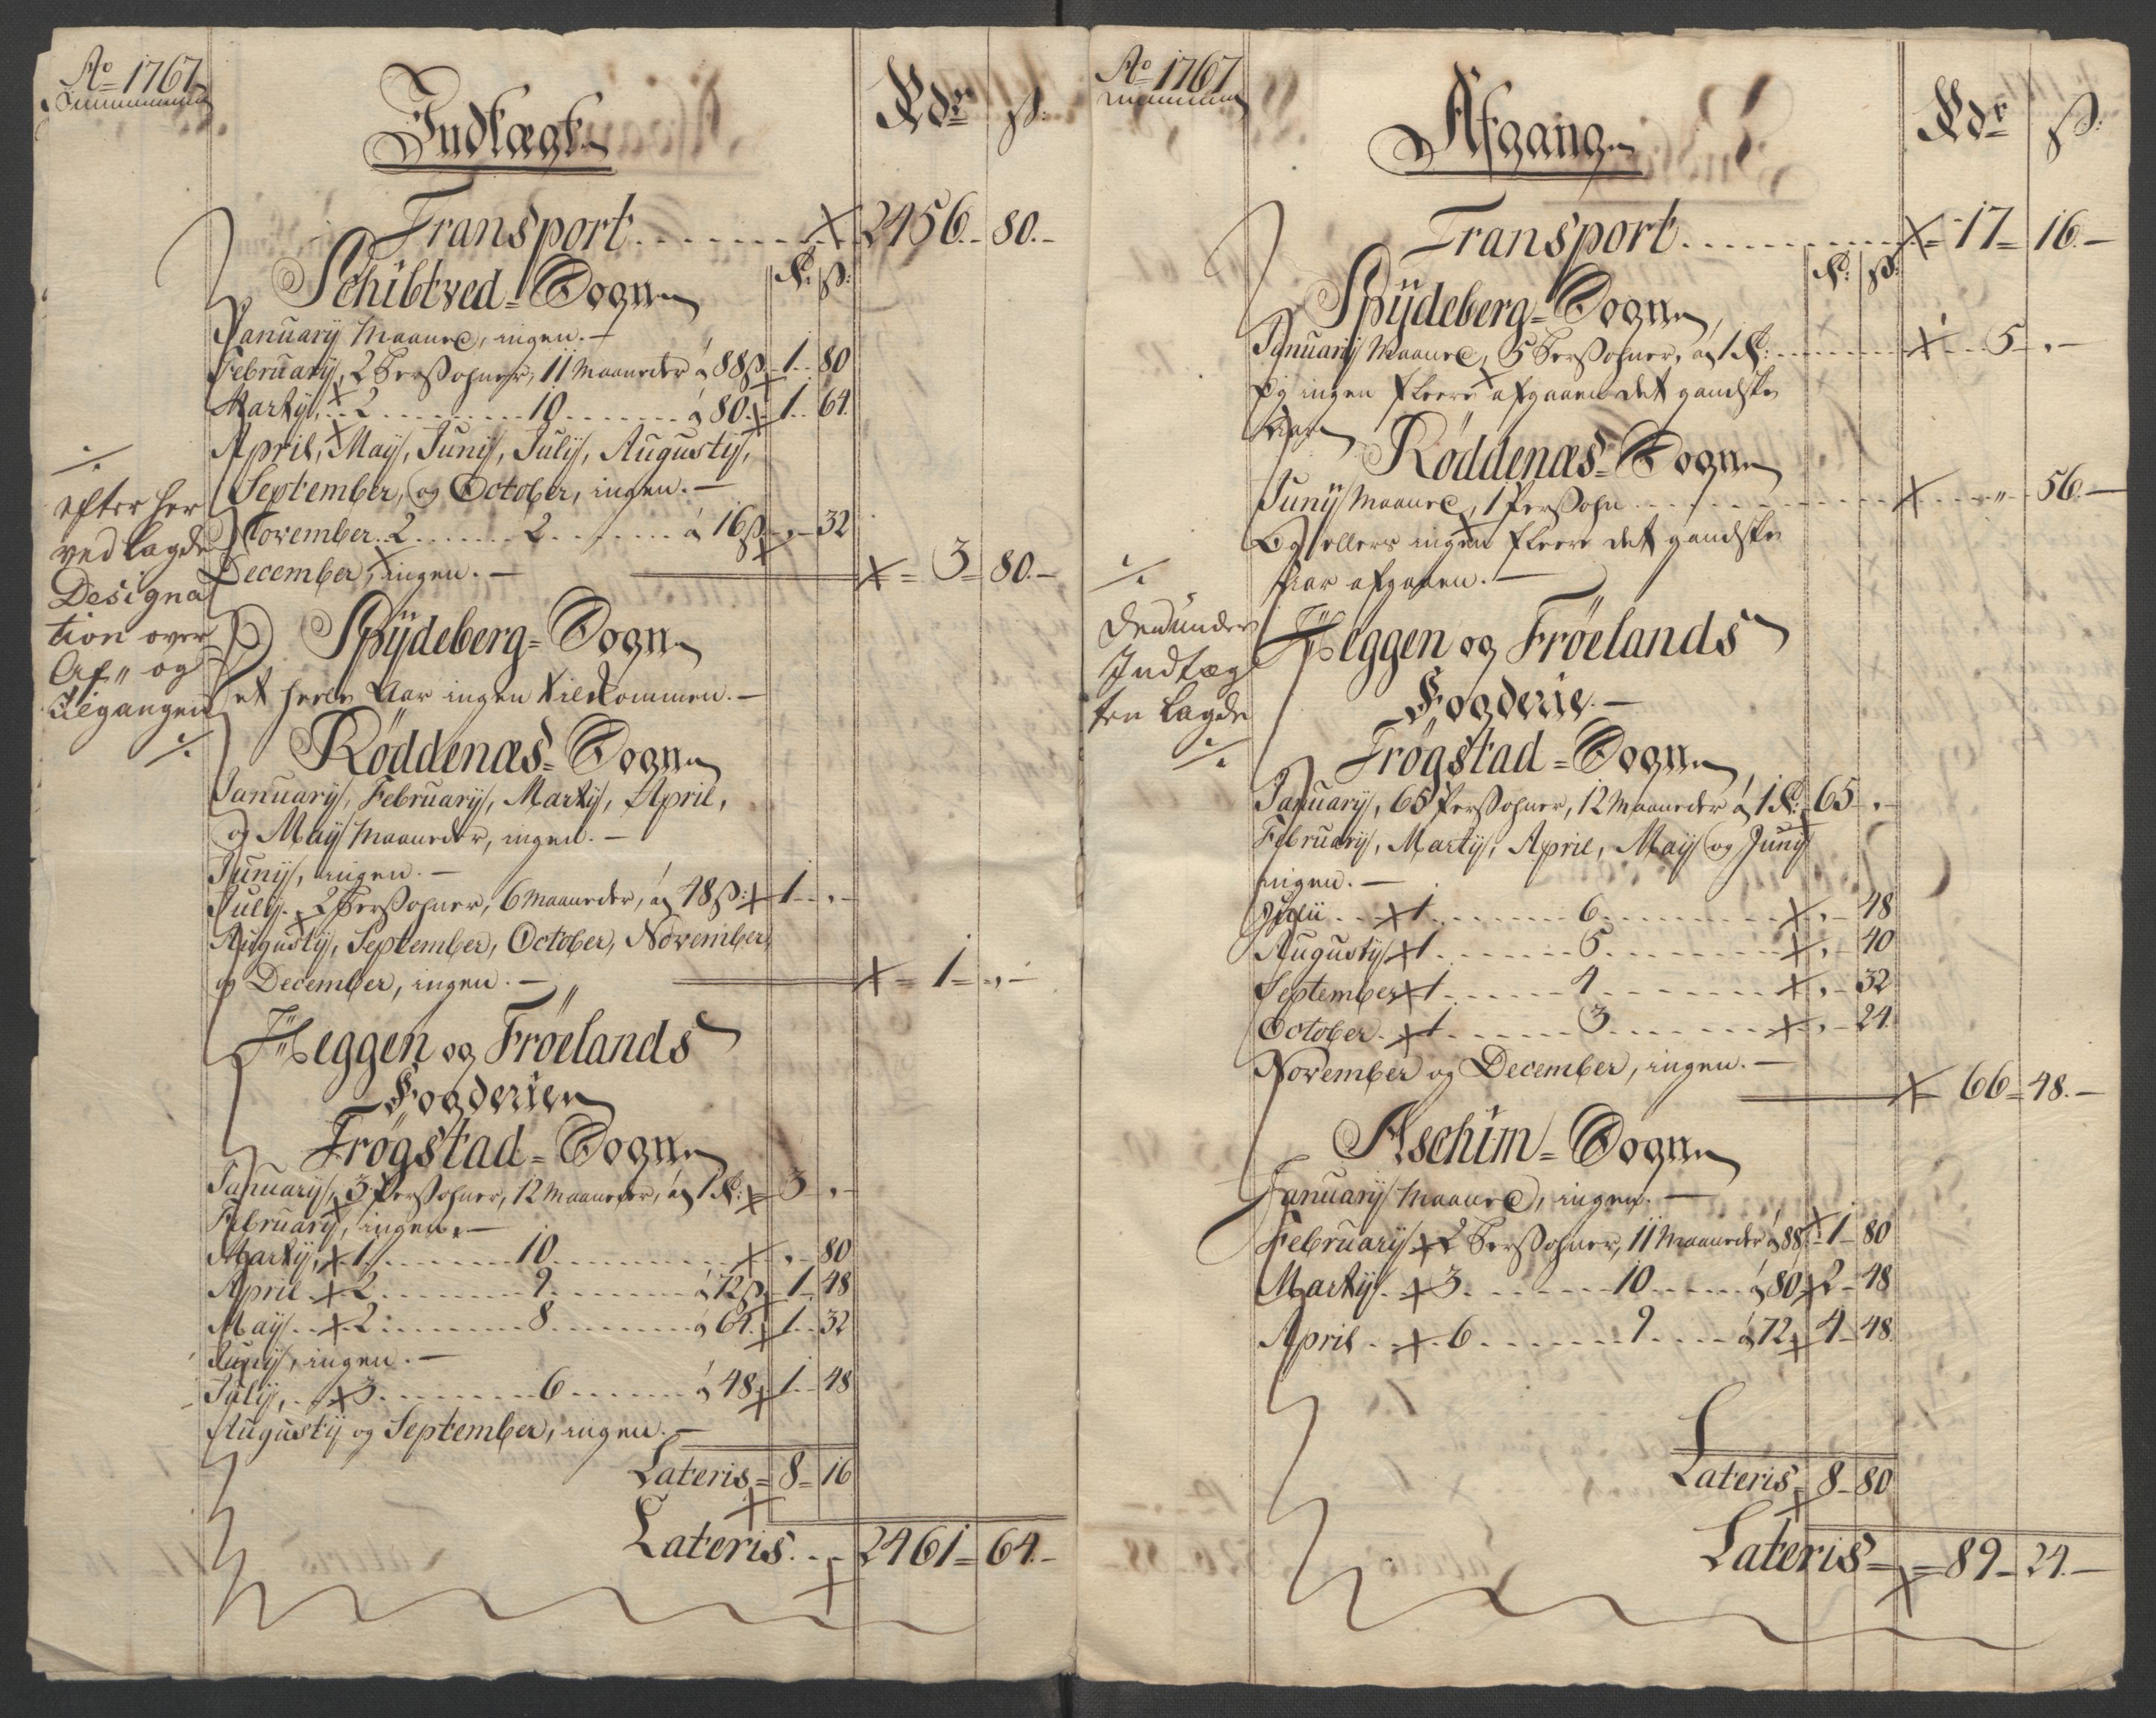 Ao 1767
Indtægt
Rdr ß:
Transport . . . . . . . 2456 .. 80. –
Schibtved = Sogn
R: ß:
January Maaned, ingen. –
February, 2 Perssohner, 11 Maaneder á 88 ß. 1 .. 80
Marty, . . 2 . . . . . . . 10 . . . . . . . á 80. 1 .. 64.
April, May, Juny, July, Augusty,
September, og October, ingen. –
November . 2 . . . . . . 2 . . . . . . . á 16 ß. „ – 32
December, ingen. –
= 3 = 80. –
·/.
efter her
ved lagde
Designa
tion over
Af„ og
Tilgangen
·/.
Spydeberg = Sogn
et heele Aar ingen tilkommen. –
Röddenæs = Sogn
January, February, Marty, April,
og May Maaneder, ingen. –
Juny, ingen. –
July . 2 Perssohner, 6 Maaneder, á 48 ß: 1 – „ –
Augusty, September, October, November,
og December, ingen. –
= 1 – „ –
Heggen og Fröelands
Fogderie
Trögstad = Sogn
January, 3 Perssohner, 12 Maaneder, á 1 R: 3 „ –
February, ingen. –
Marty, 1 . . . . . . . 10 . . . . . . . „ – 80
April . 2 . . . . . . . 9 . . . . . . . á 72 ß 1 – 48
May . . 2 . . . . . . . 8 . . . . . . . á 64. 1 .. 32
Juny, ingen. –
July, . . 3 . . . . . . . 6 . . . . . . á 48. 1 .. 48
Augusty og September, ingen. –
Lateris = 8 = 16
Lateris . . – 2461 = 64. –
Ao 1767
Afgang
Rdr ß:
Transport . . . . . . . = 17 = 16. –
R: ß:
Spydeberg = Sogn
January Maaned, 5 Perssohner, á 1 R: . . . . . . 5 – „ –
Og ingen fleere afgaaen det gandske
Aar
Röddenæs = Sogn
Juny Maaned, 1 Perssohn . . . . . . . „ – 56. –
Og ellers ingen fleere det gandske
Aar afgaaen. –
·/.
Den under
Indtæg
ten lagde
·/.
Heggen og Fröelands
Fogderie. –
Trögstad = Sogn
January, 65 Perssohner, 12 Maaneder á 1 R: 65 – „ –
February, Marty, April, May og Juny
ingen. –
Julii . . . 1 . . . . . . . 6 . . . . . . . „ – 48
Augusty 1 . . . . . . . 5 . . . . . . . „ – 40
September 1 . . . . . . 4 . . . . . . . „ – 32
October . 1 . . . . . . 3 . . . . . . . „ – 24.
November og December, ingen. –
66 = 48. –
Aschim = Sogn
January Maaned, ingen. –
February 2 Perssohner, 11 Maaneder á 88. 1 – 80
Marty . 3 . . . . . . . 10 . . . . . á 80 2 – 48
April . . 6 . . . . . . . 9 . . . . á 72. 4 – 48.
Lateris = 8 – 80
Lateris = = 89 – 24. –